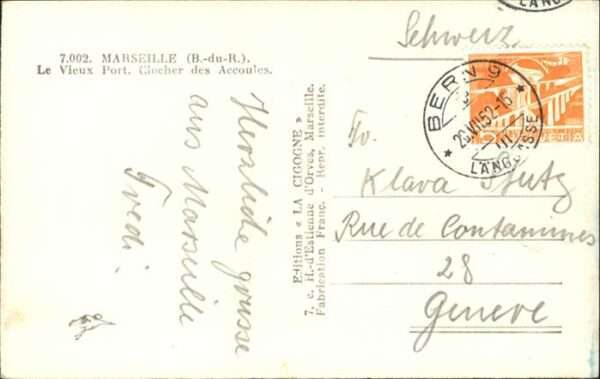 7.002. MARSEILLE (B.-du-R.).
Le Vieux Port. Clocher des Accoules.
Herzliche grüsse
aus Marseille
Fredi.
Editions « LA CIGOGNE »
7. c. H.-d'Estienne d'Orves, Marseille.
Fabrication Franç. - Repr. interdite.
Schweiz
BERN 9
LÄNGGASSE
HELVETIA
LÄNG
Klara Stutz
Rue de Contamines
28
Geneve